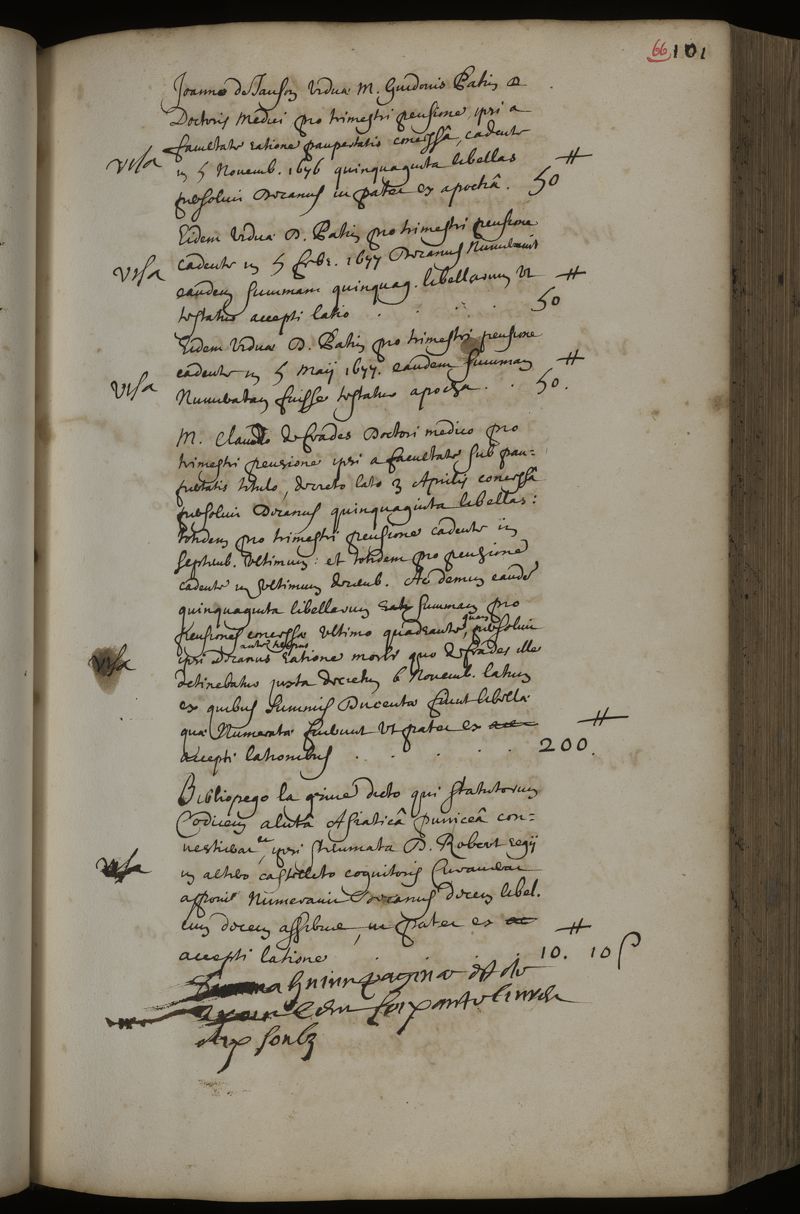 66 101
Joannæ de Janson viduæ M. Guidonis Patin
Doctoris Medici pro trimestri pensione, ipsi a
facultate ratione paupertatis concessâ, cadente
visa
in 5 Novemb. 1676 quinquaginta libellas
persolvit Decanus ut patet ex apochâ. 50 ₶
Eidem viduæ D. Patin pro trimestri pensione
visa
cadente in 5 febr. 1677 Decanus Numeravit
eandem summam quinquag. libellarum ut
testatur accepti latio . . . . 50 ₶
Eidem viduæ D. Patin pro trimestri pensione
visa
cadente in 5 Maij 1677. eandem summam
Numeratam fuisse testatur apocha . . 50. ₶
M. Claudio de frades Doctori medico pro
trimestri pensione ipsi a facultate sub pau-
pertatis titulo, decreto lato 3 Aprilis concessâ
persolvit Decanus quinquaginta libellas:
totidem pro trimestri pensione cadente in
septemb. ultimum: et totidem pro pensione
cadente in ultimum decemb. Ac demum eandē
quinquaginta libellarum summam pro
pensione ultimo quadrante, quam persolvit
visa
ipsi Decanus ratione morbi quo de frades ille
detinebatur juxta decretum 6 Novemb. latum
ex quibus summis Ducentæ sunt libellæ
quæ Numeratæ fuerunt ut patet ex
accepti lationibus . . . . . 200. ₶
Bibliopego la dicto qui statutorum
Codicem alutâ Asiaticâ puniceâ con-
vestierat, ipsi D. Robert regij
visa
in castelleto cognitoris
Numeravit Decanus decem libel.
cum decem assibus, ut patet ex
accepti latione . . . 10. ₶ 10 s
Summa paginæ